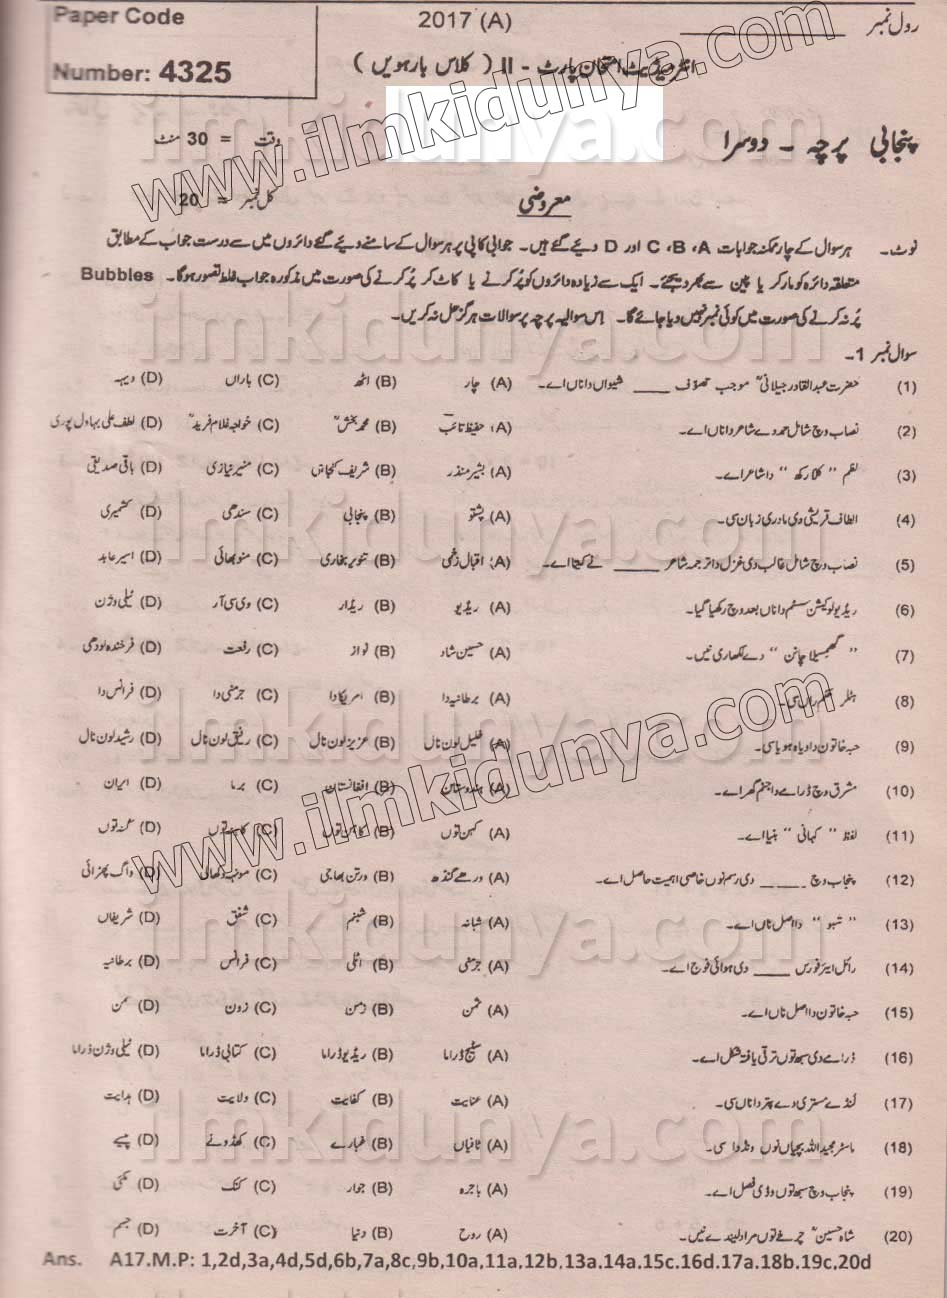 Paper Code
Number: 4325
2017 (A)
رول نمبر
انٹرمیڈیٹ امتحان پارٹ - II ( کلاس بارہویں )
پنجابی پرچہ - دوسرا
وقت = 30 منٹ
معروضی
کل نمبر = 20
نوٹ۔ ہر سوال کے چار ممکنہ جوابات C ،B ،A اور D دیئے گئے ہیں۔ جوابی کاپی پر ہر سوال کے سامنے دیئے گئے دائروں میں سے درست جواب کے مطابق
متعلقہ دائرہ کو مارکر یا پین سے بھر دیجئے۔ ایک سے زیادہ دائروں کو پُر کرنے یا کاٹ کر پُر کرنے کی صورت میں مذکورہ جواب غلط تصور ہوگا۔ Bubbles
پُر نہ کرنے کی صورت میں کوئی نمبر نہیں دیا جائے گا۔ اِس سوالیہ پرچہ پر سوالات ہرگز حل نہ کریں۔
سوال نمبر 1۔
(1) حضرت عبدالقادر جیلانیؒ موجب تصوّف ____ شیواں دا ناں اے۔ (A) چار (B) اٹھ (C) باراں (D) ویہہ
(2) نصاب وچ شامل حمد دے شاعر دا ناں اے۔ (A) حفیظ تائب (B) محمد بخشؒ (C) خواجہ غلام فریدؒ (D) لطف علی بہاول پوری
(3) نظم " کلا رکھ " دا شاعر اے۔ (A) بشیر منذر (B) شریف کنجاہی (C) منیر نیازی (D) باقی صدیقی
(4) الطاف قریشی دی مادری زبان سی۔ (A) پشتو (B) پنجابی (C) سندھی (D) کشمیری
(5) نصاب وچ شامل غالب دی غزل دا ترجمہ شاعر ____ نے کیتا اے۔ (A) اقبال زخمی (B) تنویر بخاری (C) منو بھائی (D) اسیر عابد
(6) ریڈیو لوکیشن سسٹم دا ناں بعد وچ رکھیا گیا۔ (A) ریڈیو (B) ریڈار (C) وی سی آر (D) ٹیلی وژن
(7) " گھسمیلا چانن " دے لکھاری نیں۔ (A) حسین شاد (B) نواز (C) رفعت (D) فرخندہ لودھی
(8) ہٹلر حکم ران سی۔ (A) برطانیہ دا (B) امریکا دا (C) جرمنی دا (D) فرانس دا
(9) حبہ خاتون دا ویاہ ہویا سی۔ (A) خلیل لون نال (B) عزیز لون نال (C) رفیق لون نال (D) رشید لون نال
(10) مشرق وچ ڈرامے دا جنم گھر اے۔ (A) ہندوستان (B) افغانستان (C) برما (D) ایران
(11) لفظ " کہانی " بنیا اے۔ (A) کہن توں (B) کاہن توں (C) توں (D) توں
(12) پنجاب وچ ____ دی رسم نوں خاصی اہمیت حاصل اے۔ (A) ورھے گنڈھ (B) ورتن بھاجی (C) مونہہ دکھائی (D) واگ پھڑائی
(13) " شبو " دا اصل ناں اے۔ (A) شبانہ (B) شبنم (C) شفق (D) شریفاں
(14) رائل ایئر فورس ____ دی ہوائی فوج اے۔ (A) جرمنی (B) اٹلی (C) فرانس (D) برطانیہ
(15) حبہ خاتون دا اصل ناں اے۔ (A) ثمن (B) زمن (C) زون (D) سمن
(16) ڈرامے دی سبھ توں ترقی یافتہ شکل اے۔ (A) سٹیج ڈراما (B) ریڈیو ڈراما (C) کتابی ڈراما (D) ٹیلی وژن ڈراما
(17) لنڈے مستری دے پتر دا ناں سی۔ (A) عنایت (B) کفایت (C) ولایت (D) ہدایت
(18) ماسٹر مجید اللہ بچیاں نوں ونڈدا سی۔ (A) ٹافیاں (B) غبارے (C) کھڈونے (D) پیسے
(19) پنجاب وچ سبھ توں وڈی فصل اے۔ (A) باجرہ (B) جوار (C) کنک (D) مکئی
(20) شاہ حسینؒ چرخے توں مراد لیندے نیں۔ (A) روح (B) دنیا (C) آخرت (D) جسم
Ans. A17.M.P: 1,2d,3a,4d,5d,6b,7a,8c,9b,10a,11a,12b,13a.14a.15c.16d.17a.18b.19c,20d
www.ilmkidunya.com
www.ilmkidunya.com
ilmkidunya.com